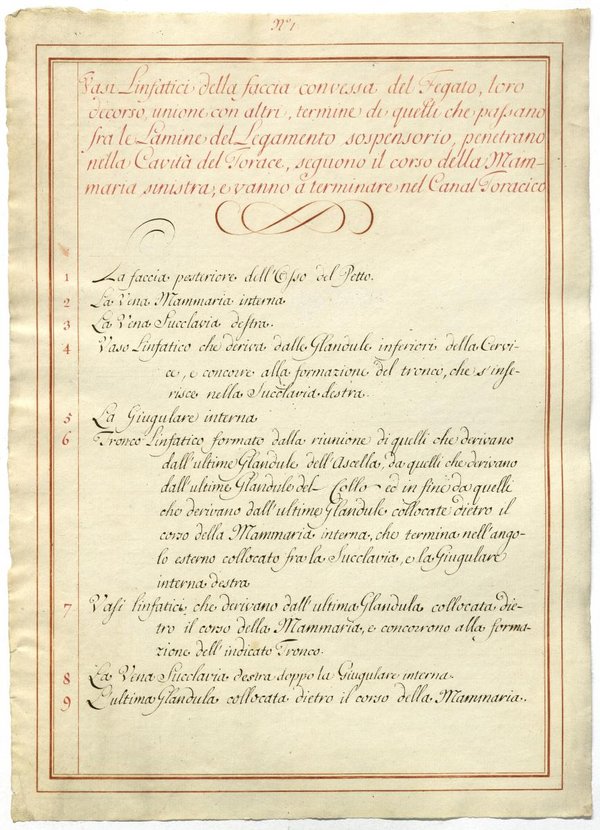 N.º 1
Vasi Linfatici della faccia convessa del Fegato, loro
decorso, unione con altri, termine di quelli che passano
fra le Lamine del Legamento sospensorio, penetrano
nella Cavità del Torace, seguono il corso della Mam-
maria sinistra, e vanno à terminare nel Canal Toracico
1 La faccia posteriore dell'Osso del Petto.
2 La Vena Mammaria interna
3 La Vena Succlavia destra.
4 Vaso Linfatico che deriva dalle Glandule inferiori della Cervi-
ce, e concorre alla formazione del tronco, che s'inse-
risce nella Succlavia destra.
5 La Giugulare interna
6 Tronco Linfatico formato dalla riunione di quelli che derivano
dall'ultime Glandule dell'Ascella, da quelli che derivano
dall'ultime Glandule del Collo ed in fine da quelli
che derivano dall'ultime Glandule collocate dietro il
corso della Mammaria interna, che termina nell'ango-
lo esterno collocato fra la Succlavia, e la Giugulare
interna destra
7 Vasi linfatici, che derivano dall'ultima Glandula collocata die-
tro il corso della Mammaria, e concorrono alla forma-
zione dell'indicato Tronco.
8 La Vena Succlavia destra doppo la Giugulare interna.
9 L'ultima Glandula collocata dietro il corso della Mammaria.